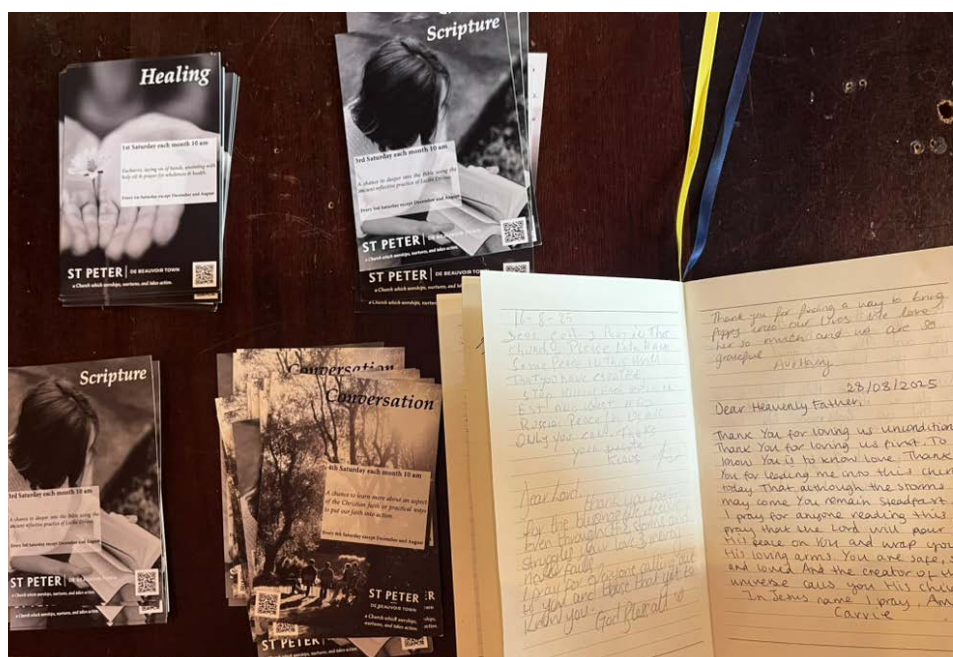 Healing
1st Saturday each month 10 am
Eucharist, laying on of hands, anointing with
holy oil & prayer for wholeness & health.
Every 1st Saturday except December and August
ST PETER | DE BEAUVOIR TOWN
a Church which worships, nurtures, and takes action.
Scripture
3rd Saturday each month 10 am
A chance to deeper into the Bible using the
ancient reflective practice of Lectio Divina.
Every 3rd Saturday except December and August
ST PETER | DE BEAUVOIR TOWN
a Church which worships, nurtures, and takes action.
ST PETER | DE BEAUVOIR TOWN
a Church which worships, nurtures, and takes action.
Scripture
3rd Saturday each month 10 am
A chance to deeper into the Bible using the
ancient reflective practice of Lectio Divina.
Every 3rd Saturday except December and August
ST PETER | DE BEAUVOIR TOWN
a Church which worships, nurtures, and takes action.
ST PETER | DE BEAUVOIR TOWN
Conversation
Conversation
4th Saturday each month 10 am
A chance to learn more about an aspect
of the Christian faith or practical ways
to put our faith into action.
Every 4th Saturday except December and August
ST PETER
DE BEAUVOIR TOWN
a Church which worships, nurtures, and takes action.
ST PETER
16-8-25
church Please
Some Peace in the World
That you have created
Stop
Russia Peace
Only you can. Thanks
Dear Lord,
Thank you
for the blessings
Even through the storms and
struggles your love & mercy
never fails.
I pray for everyone calling out
to you and those that yet to
know you. God Bless all
Thank you for finding a way to bring
Poppy into our lives. We love
her so much and we are so
grateful
28/08/2025
Dear Heavenly Father,
Thank You for loving us uncondition
Thank You for loving us first. To
know You is to know love. Thank
You for leading me into this chur
today. That although the storms
may come You remain steadfast.
I pray for anyone reading this. I
pray that the Lord will pour
His peace on You and wrap you
His loving arms. You are safe, s
and loved. And the creator of th
universe calls you His chil
In Jesus name I pray, Am
Carrie